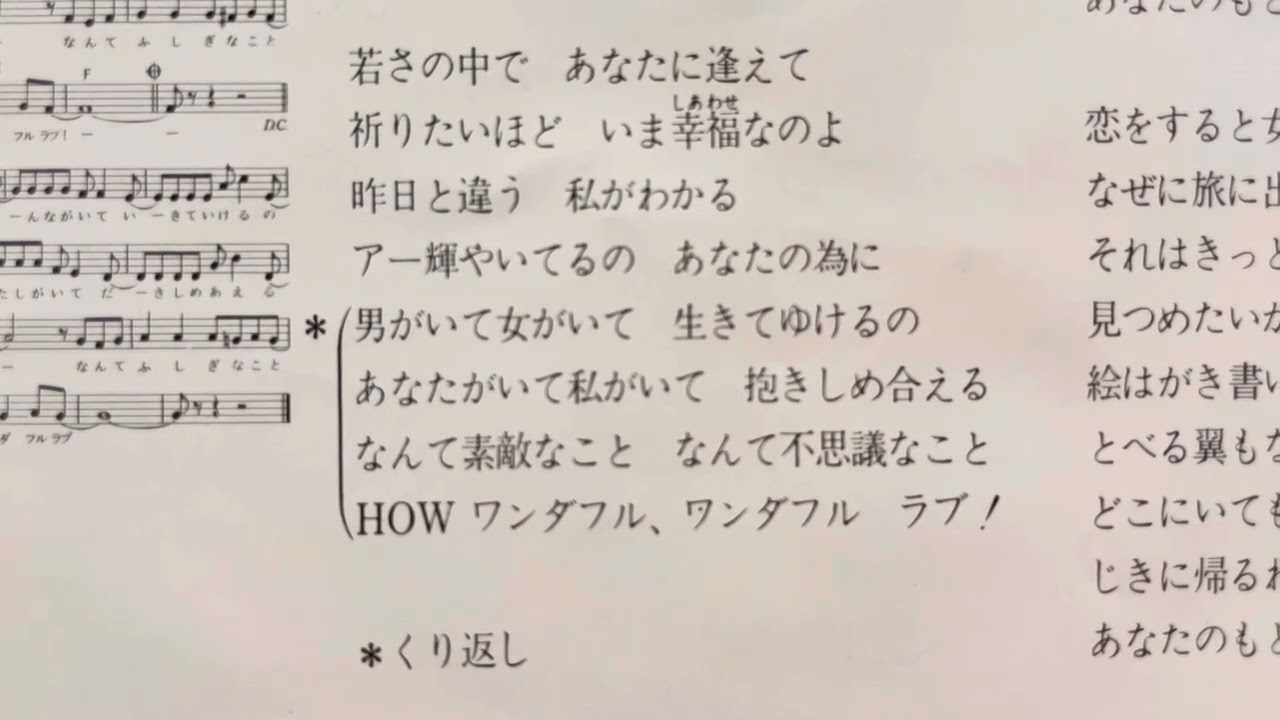 なんて ふしぎなこと
F
フルラブ!ー ー
D.C.
ーんながいて いーきていけるの
たしがいて だーきしめあえる
ー なんて ふしぎなこと
ダ フルラブ
若さの中で あなたに逢えて
しあわせ
祈りたいほど いま幸福なのよ
昨日と違う 私がわかる
アー輝やいてるの あなたの為に
*男がいて女がいて 生きてゆけるの
あなたがいて私がいて 抱きしめ合える
なんて素敵なこと なんて不思議なこと
HOW ワンダフル、ワンダフル ラブ!
*くり返し
あなたのもと
恋をすると女
なぜに旅に出
それはきっと
見つめたいか
絵はがき書い
とべる翼もな
どこにいても
じきに帰るわ
あなたのもと